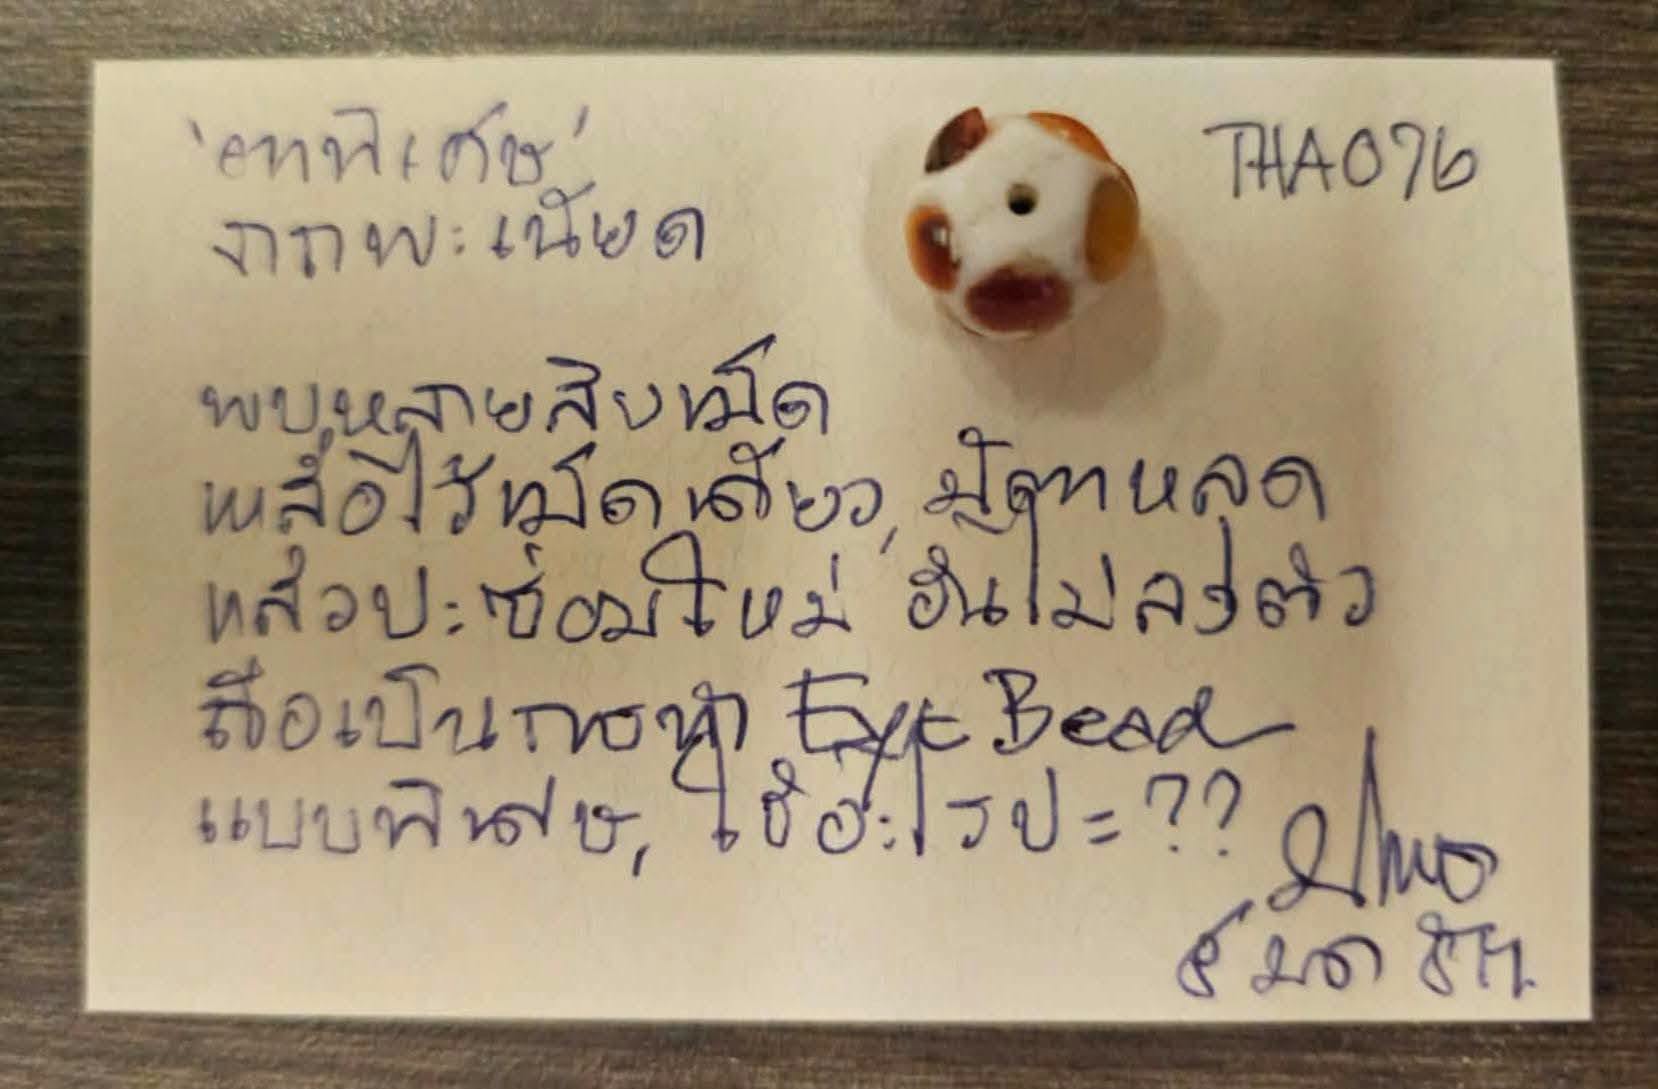 'ตาพิเศษ'
THA076
ภูเขาพะเนียด
พบหลายสิบเม็ด
เหลือไว้เม็ดเดียว, มีตาหลุด
แล้วปะซ่อมใหม่ อันไม่ลงตัว
ถือเป็นการทำ Eye Bead
แบบพิเศษ, ใช้อะไรปะ = ??
๘ มค